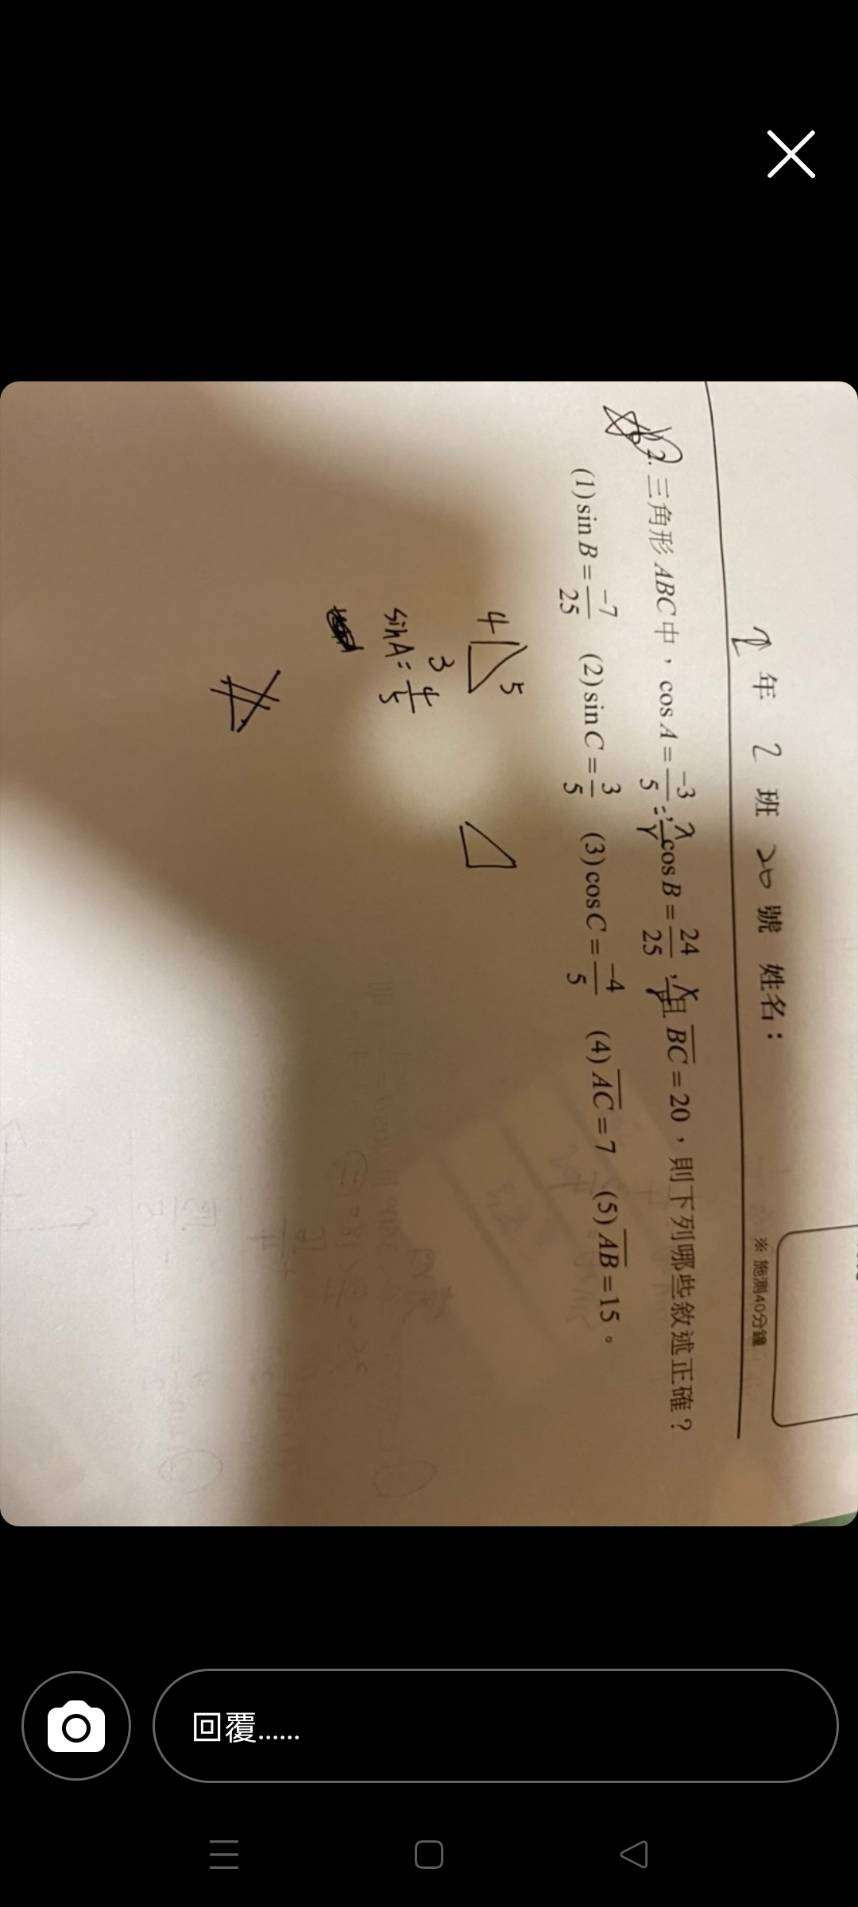 2年 2班 20號 姓名：
※ 施測40分鐘
2. 三角形 ABC 中，cos A = -3/5，cos B = 24/25，且 BC = 20，則下列哪些敘述正確？
(1) sin B = -7/25 (2) sin C = 3/5 (3) cos C = -4/5 (4) AC = 7 (5) AB = 15。
4 5
3
sin A = 4/5
回覆......